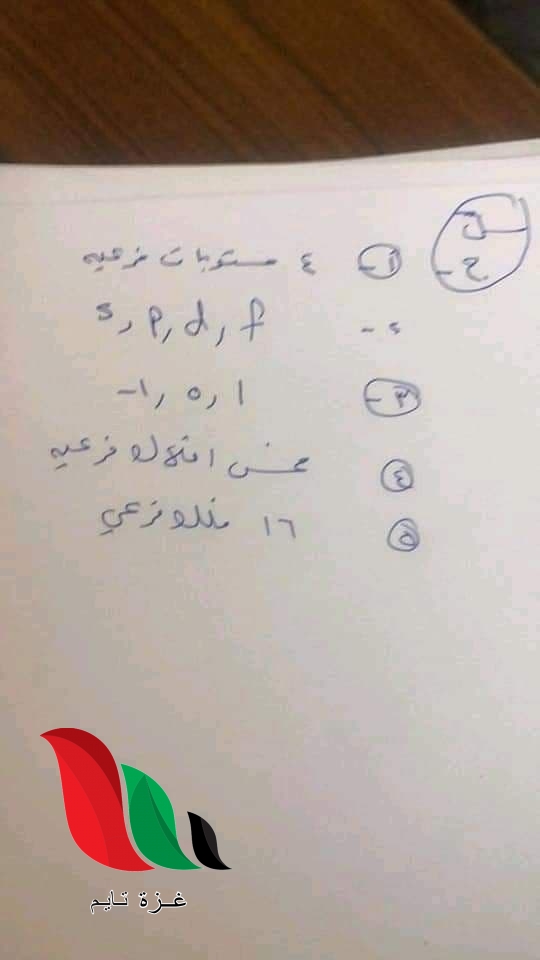 س
ج -
١- ٤ مستويات فرعيه
٢- s, p, d, f
٣- 1, 0, -1
٤ خمس افلاك فرعيه
٥ ١٦ فلك فرعي
غزة تايم